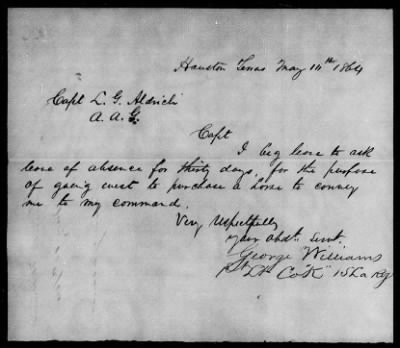 Houston Texas May 14th 1864
Capt L. G. Aldrich
A. A. G.
Capt
I beg leave to ask
leave of absence for thirty days, for the purpose
of going west to purchase a horse to convey
me to my command.
Very Respectfully
Your Obdt. Servt.
George Williams
1st Lt Co "K" 15 La Reg